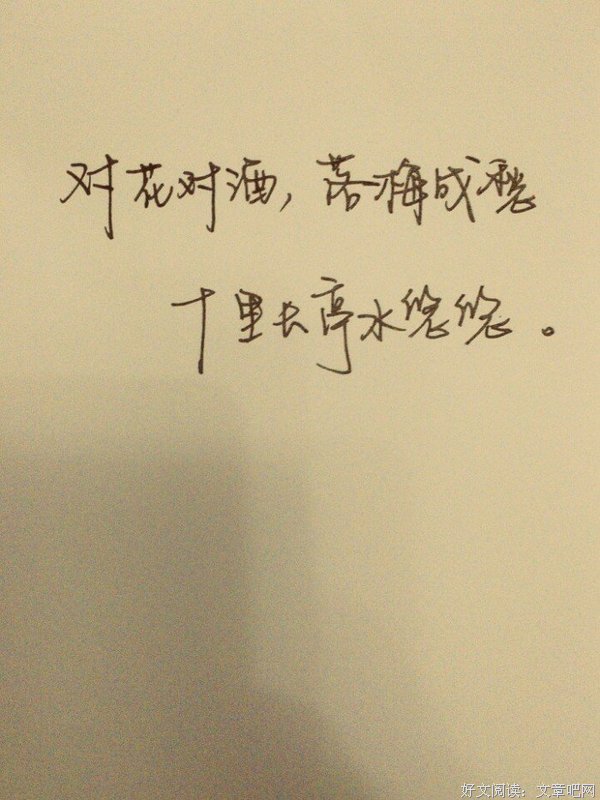 对花对酒，落梅成愁
十里长亭水悠悠。
好文阅读：文章吧网